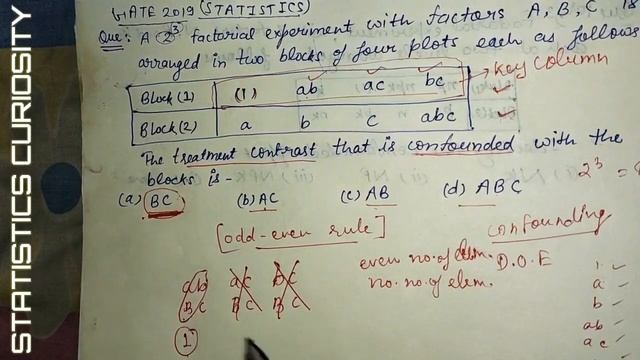 STATISTICS CURIOSITY
GATE 2019 (STATISTICS)
Que: A 2^3 factorial experiment with factors A, B, C is
arranged in two blocks of four plots each as follows
key column
Block (1) (1) ab ac bc
Block (2) a b c abc
The treatment contrast that is confounded with the
blocks is -
2^3 = 8
(a) BC (b) AC (c) AB (d) ABC
[odd-even rule]
confounding
even no. of elem. D.O.E
no. no. of elem.
ab ac bc
BC BC BC
1
1
a
b
ab
ac